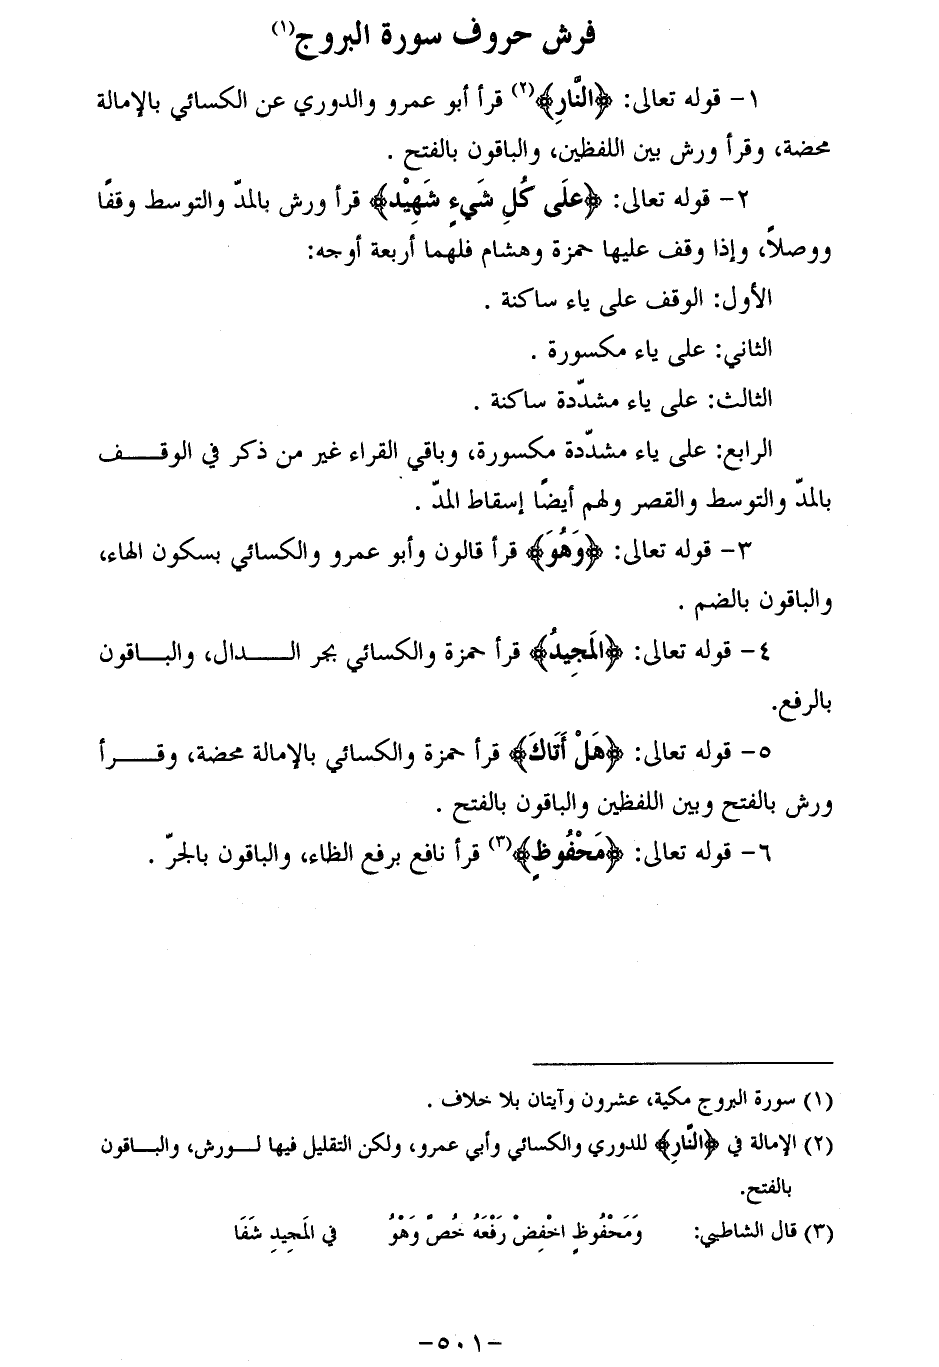 فرش حروف سورة البروج(١)
١- قوله تعالى: ﴿النَّارِ﴾(٢) قرأ أبو عمرو والدوري عن الكسائي بالإمالة
محضة، وقرأ ورش بين اللفظين، والباقون بالفتح .
٢- قوله تعالى: ﴿علَى كُلِ شَيءٍ شَهِيْد﴾ قرأ ورش بالمدّ والتوسط وقفًا
ووصلاً، وإذا وقف عليها حمزة وهشام فلهما أربعة أوجه:
الأول: الوقف على ياء ساكنة .
الثاني: على ياء مكسورة .
الثالث: على ياء مشدّدة ساكنة .
الرابع: على ياء مشدّدة مكسورة، وباقي القراء غير من ذكر في الوقف
بالمدّ والتوسط والقصر ولهم أيضًا إسقاط المدّ .
٣- قوله تعالى: ﴿وَهُوَ﴾ قرأ قالون وأبو عمرو والكسائي بسكون الهاء،
والباقون بالضم .
٤- قوله تعالى: ﴿المَجِيدُ﴾ قرأ حمزة والكسائي بجر الدال، والباقون
بالرفع.
٥- قوله تعالى: ﴿هَلْ أَتَاكَ﴾ قرأ حمزة والكسائي بالإمالة محضة، وقرأ
ورش بالفتح وبين اللفظين والباقون بالفتح .
٦- قوله تعالى: ﴿مَحْفُوظٍ﴾(٣) قرأ نافع برفع الظاء، والباقون بالجرّ .
(١) سورة البروج مكية، عشرون وآيتان بلا خلاف .
(٢) الإمالة في ﴿النَّارِ﴾ للدوري والكسائي وأبي عمرو، ولكن التقليل فيها لورش، والباقون
بالفتح.
(٣) قال الشاطبي: وَمَحْفُوظٍ اخْفِضْ رَفْعَهُ خُصَّ وَهْوُ في المَجِيدِ شَفَا
-٥٠١-